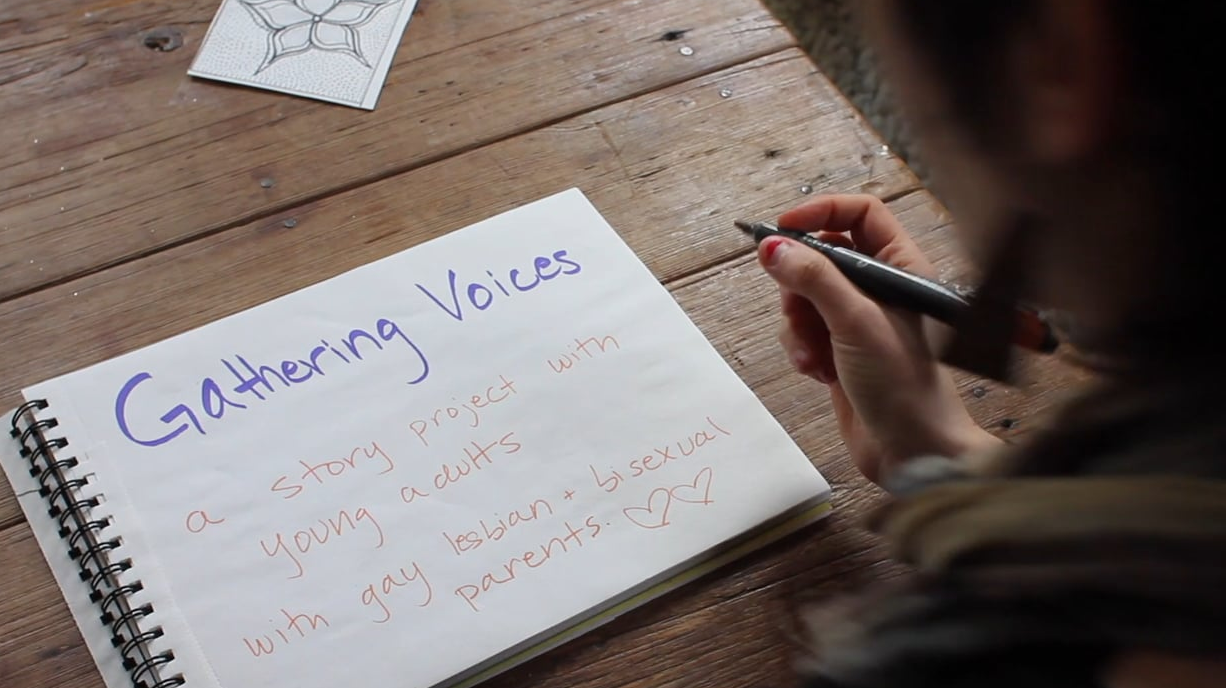 Gathering Voices
a story project with
young adults
with gay lesbian + bisexual
parents. ♡♡